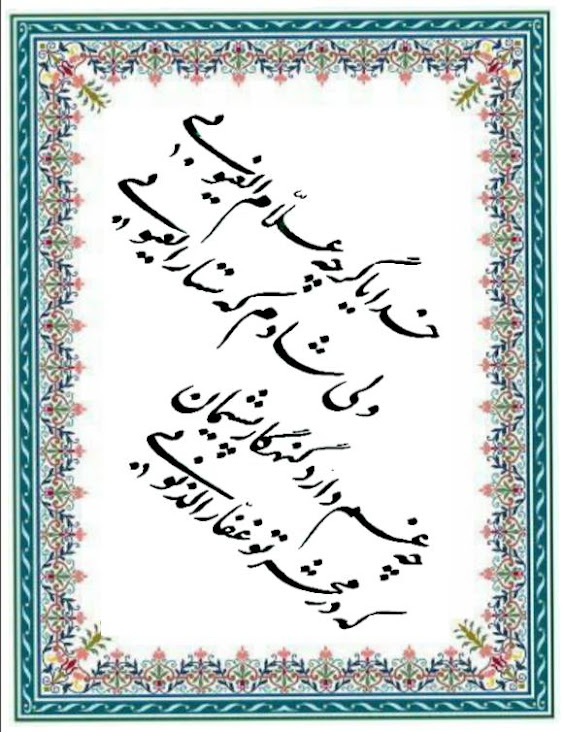 خدایا گرچه علّام الغیوبی
ولی شادم که ستار العیوبی
چه غم دارد گنهکار پشیمان
که در محشر تو غفّار الذنوبی